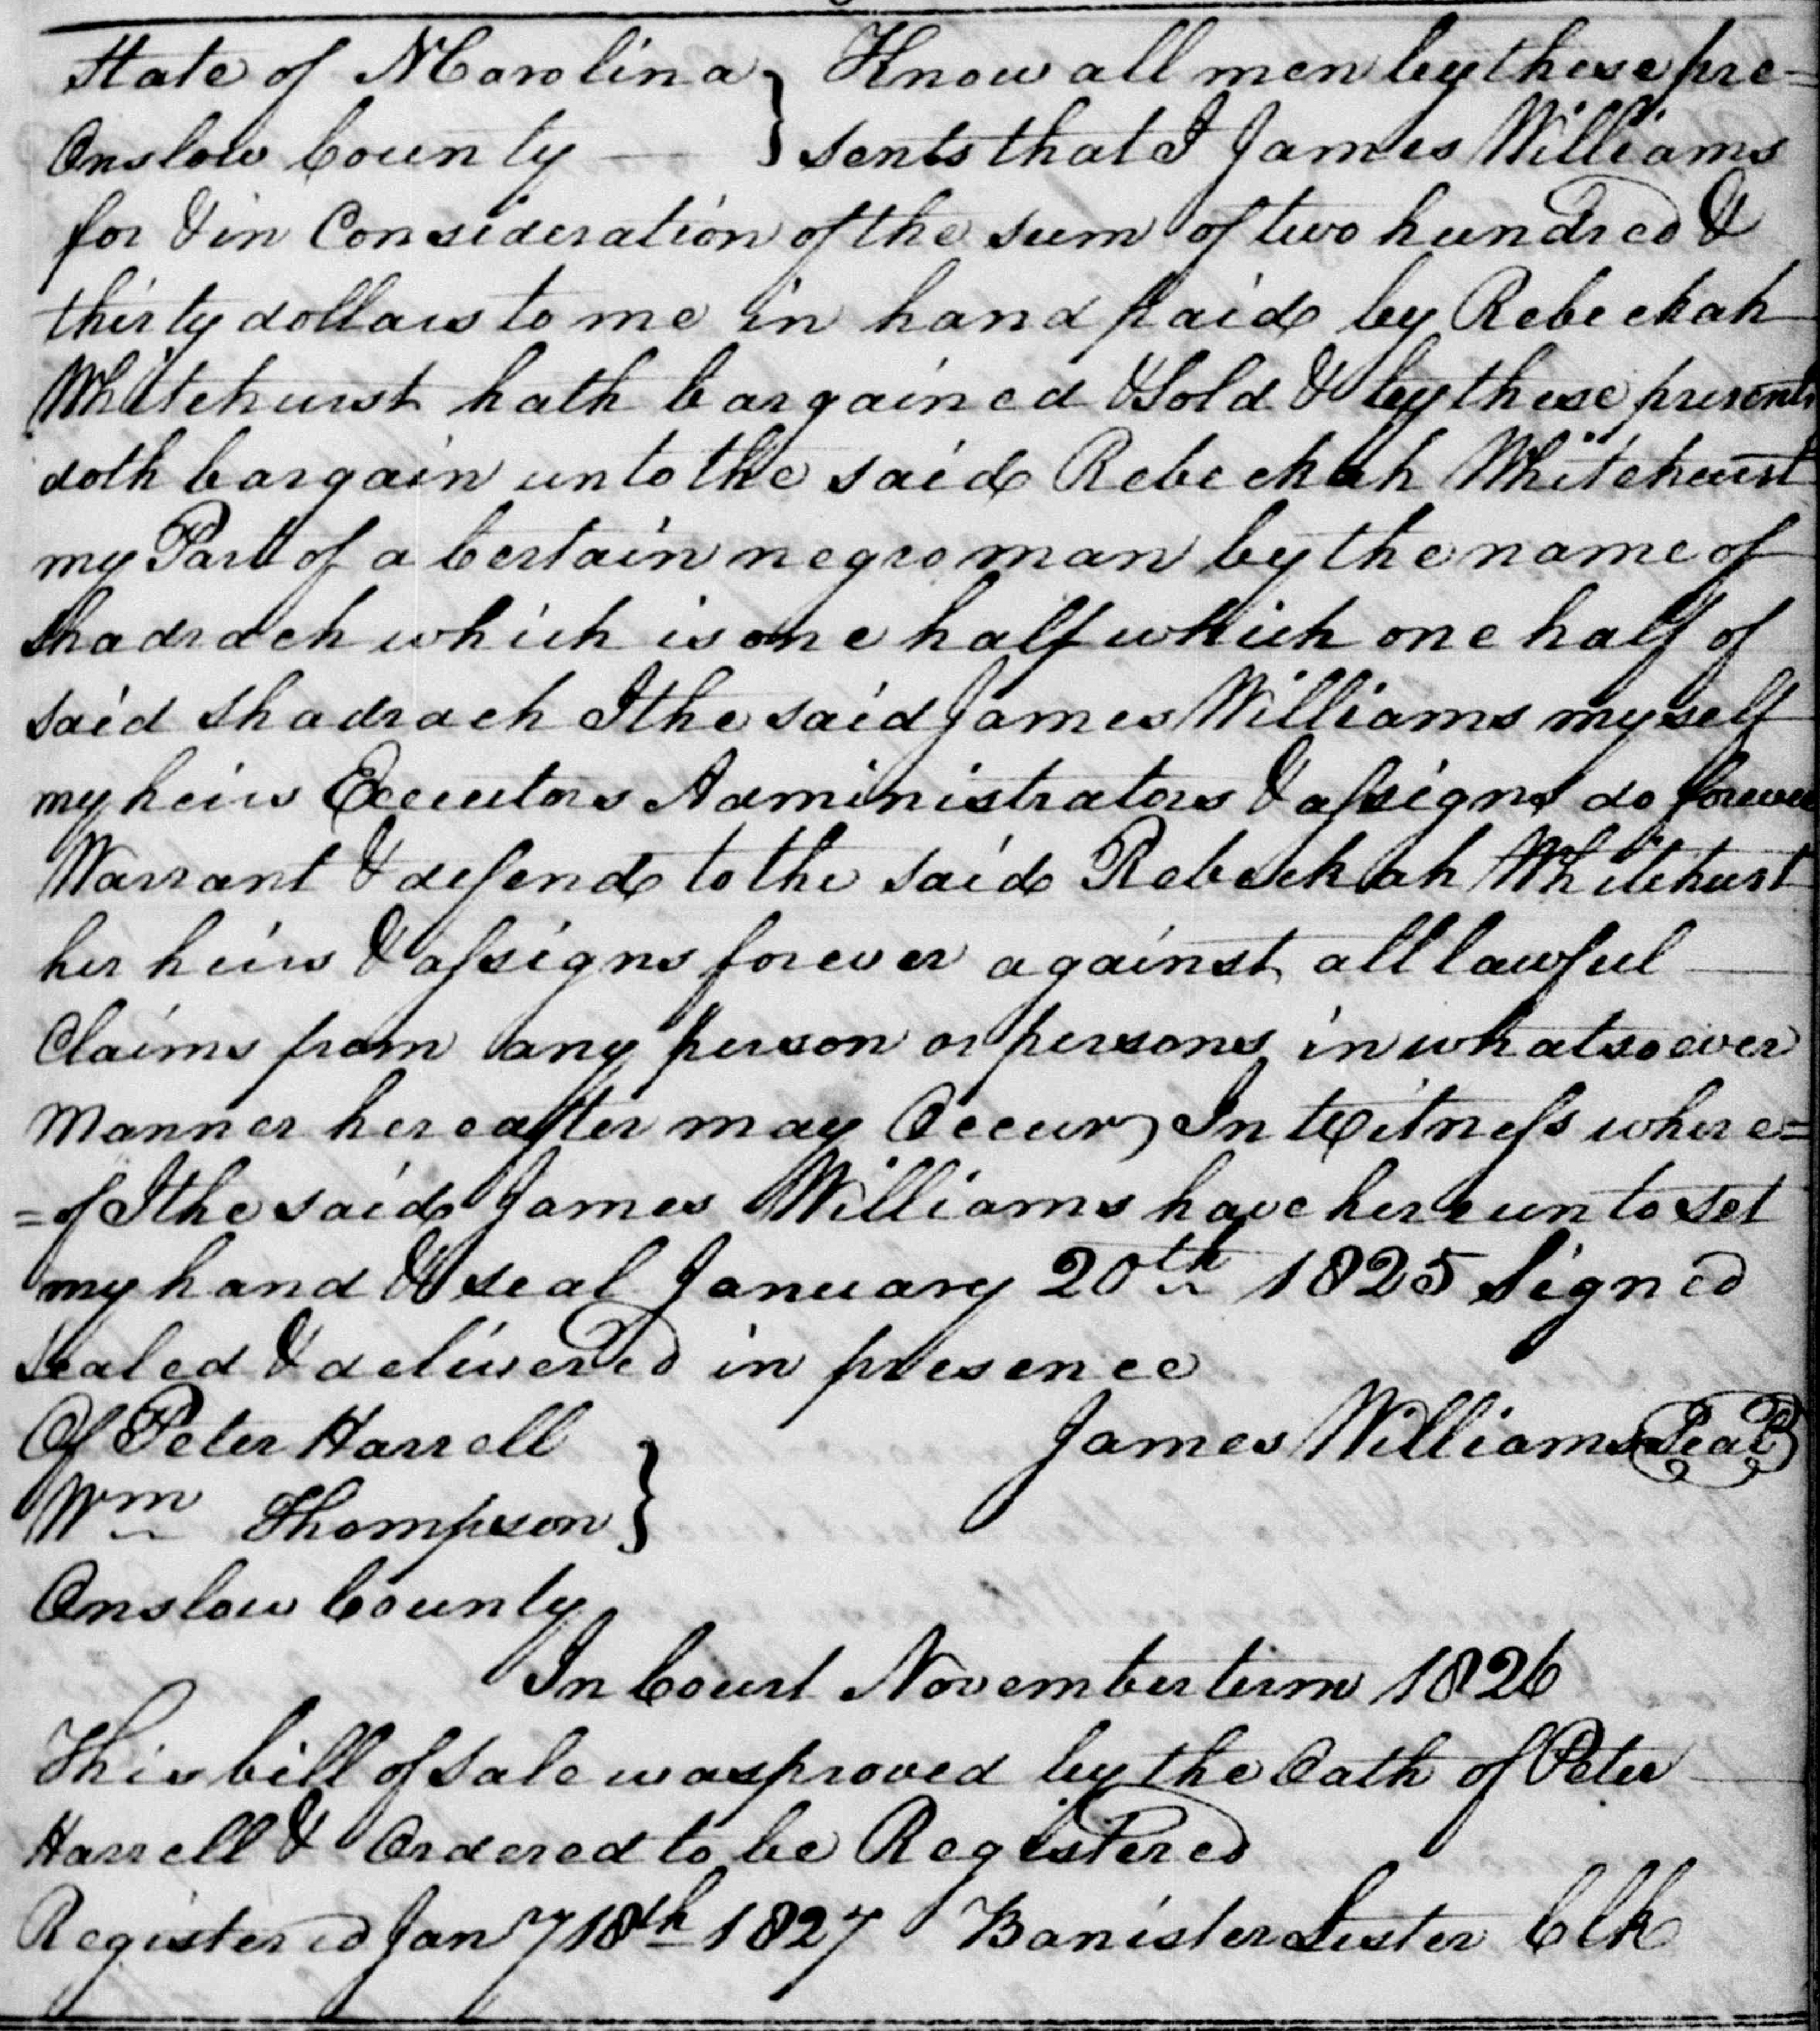 State of N Carolina } Know all men by these pre=
Onslow County — } sents that I James Williams
for & in Consideration of the sum of two hundred &
thirty dollars to me in hand paid by Rebeckah
Whitehurst hath bargained & Sold & by these presents
doth bargain unto the said Rebeckah Whitehurst
my Part of a Certain negro man by the name of
Shadrach which is one half which one half of
said Shadrach I the said James Williams myself
my heirs Executors Administrators & assigns do forever
Warrant & defend to the said Rebeckah Whitehurst
her heirs & assigns forever against all lawful
Claims from any person or persons in whatsoever
Manner hereafter may Occur, In Witness where=
=of I the said James Williams have hereunto set
my hand & seal January 20th 1825 Signed
Sealed & delivered in presence
Of Peter Harrell } James Williams Seal
Wm Thompson }
Onslow County
In Court November term 1826
This bill of Sale was proved by the Oath of Peter
Harrell & Ordered to be Registered
Registered Jany 18th 1827 Banister Lester Clk